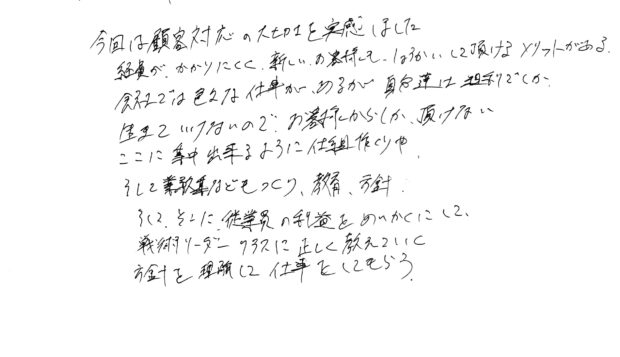 今回は顧客対応の大切さを実感しました
経費が、かかりにくく、新しいお客様も、しょうかいして頂けるメリットがある。
会社では色々な仕事が、あるが 自分達は 粗利でしか
生きて いけないので、お客様からしか、頂けない
ここに集中出来るように仕組作りや
そして業務集などもつくり、教育、方針、
そして、そこに、従業員の利益をめいかくにして、
戦術リーダー クラスに正しく教えていく
方針を理解して仕事をしてもらう